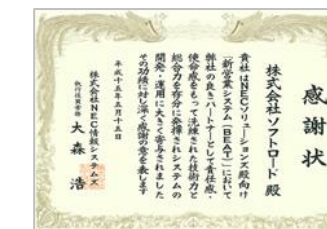 感謝状
株式会社ソフトロード 殿
貴社はNECソリューションズ殿向け
「新営業システム「BEAT」において
弊社の良きパートナーとして責任感・
使命感をもって洗練された技術力と
総合力を存分に発揮されシステムの
開発・運用に大きく寄与されました
その功績に対し深く感謝の意を表します
平成十五年五月十五日
株式会社NEC情報システムズ
執行役員常務
大森 浩